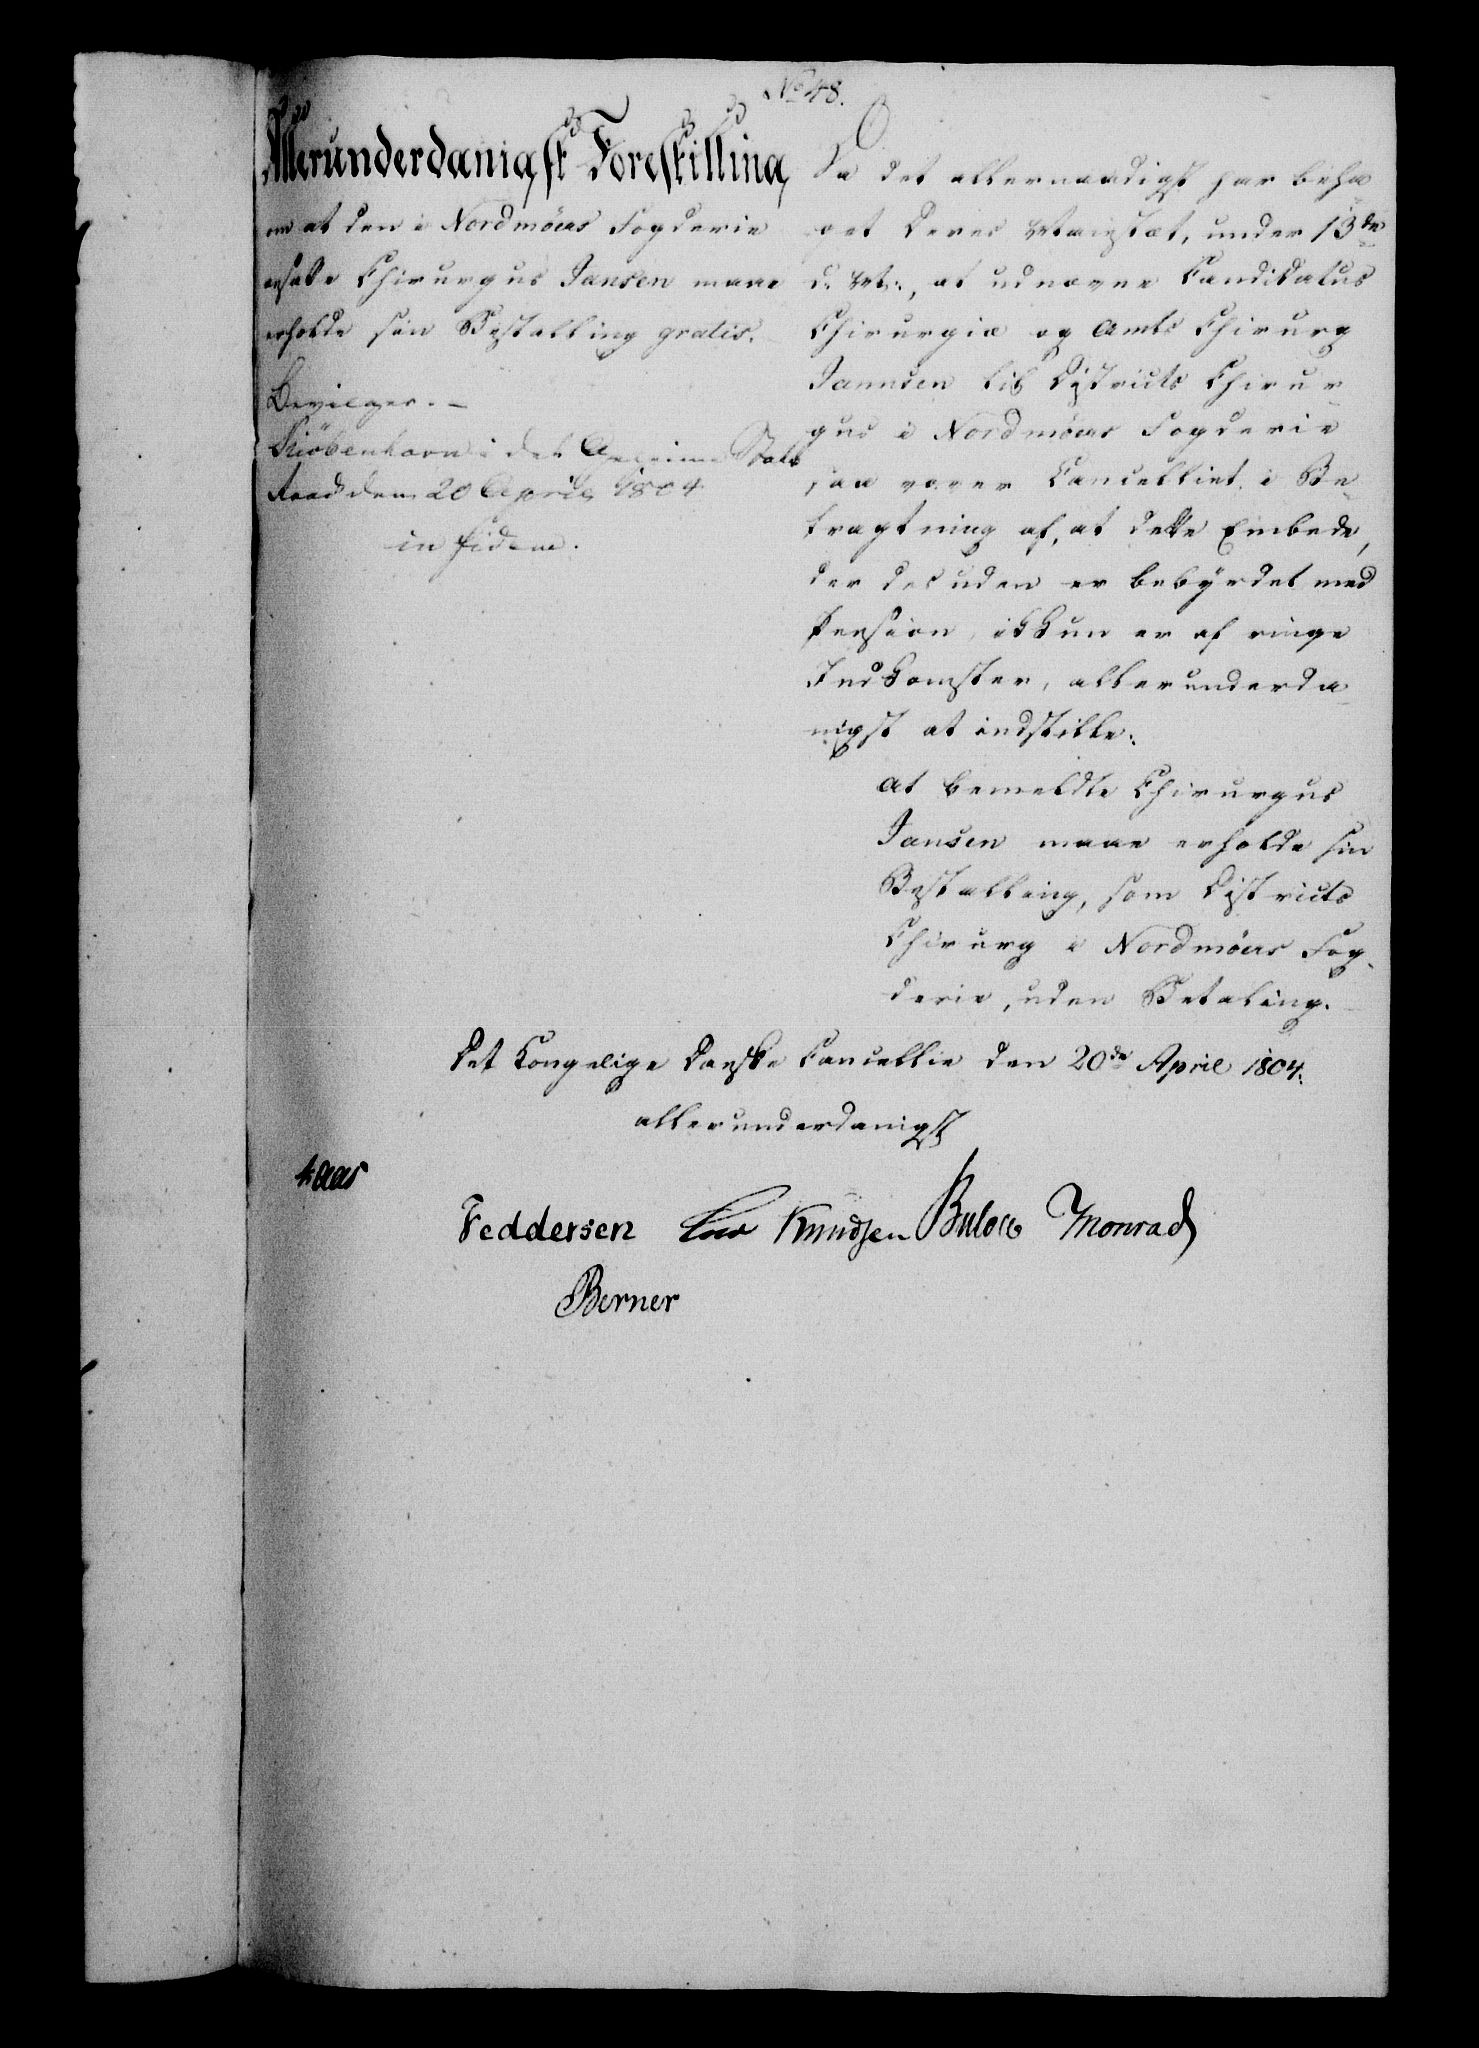 No 48.
Allerunderdanigst Forestilling
om at den i Nordmöers Fogderie
ansatte Chirurgus Jansen maae
erholde sin Bestalling gratis.
Bevilges. –
Kiöbenhavn i det Geheime Stats
Raad den 20 April 1804
in fidem.
Da det allernaadigst har beha
get Deres Majestæt, under 13de
d: M:, at udnævne Candidatus
Chirurgiæ og Amts Chirurg
Jannsen til Districts Chirur-
gus i Nordmöers Fogderie
saa vover Cancelliet, i Be-
tragtning af, at dette Embede,
der desuden er bebyrdet med
Pension, ikkun er af ringe
Indkomster, allerunderda-
nigst at indstille:
at bemeldte Chirurgus
Jansen maae erholde sin
Bestalling, som Districts
Chirurg i Nordmöers Fog-
derie, uden Betaling.
Det Kongelige Danske Cancellie den 20de April 1804.
allerunderdanigst
Kaas
Feddersen Knudsen Bülow Monrad
Berner